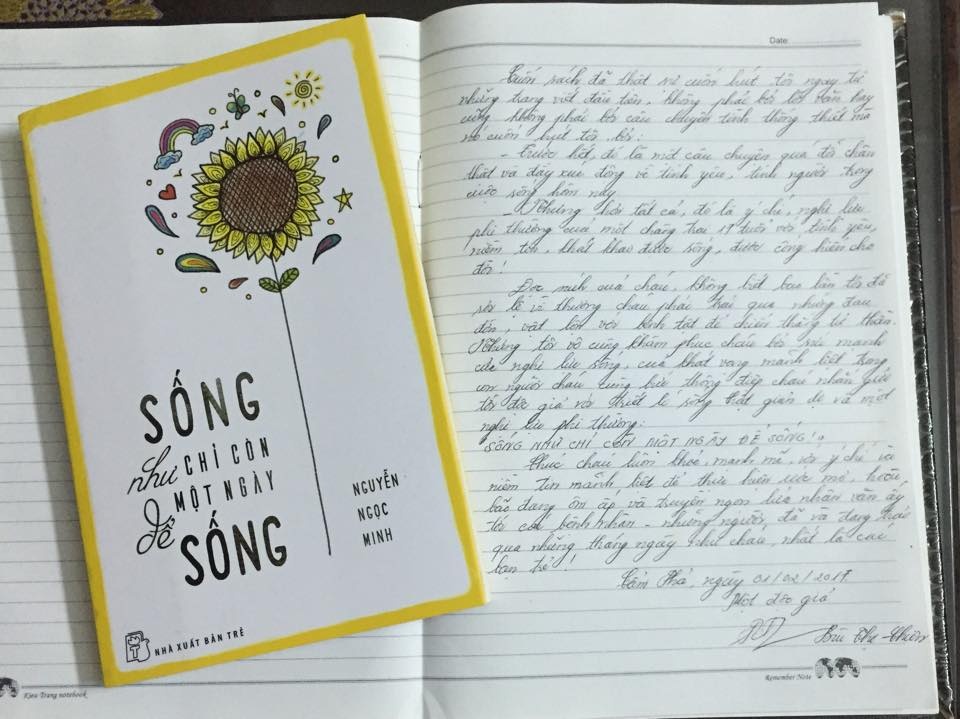 SỐNG
như CHỈ CÒN
MỘT NGÀY
để
SỐNG
NGUYỄN
NGỌC
MINH
NHÀ XUẤT BẢN TRẺ
Kieu Trang notebook
Date:
Cuốn sách đã thật sự cuốn hút tôi ngay từ
những trang viết đầu tiên, không phải bởi lời văn hay
cũng không phải bởi câu chuyện tình thống thiết mà
nó cuốn hút tôi bởi:
- Trước hết, đó là một câu chuyện quá đỗi chân
thật và đầy xúc động về tình yêu, tình người trong
cuộc sống hôm nay.
- Nhưng hơn tất cả, đó là ý chí, nghị lực
phi thường của một chàng trai 19 tuổi với tình yêu,
niềm tin, khát khao được sống, được cống hiến cho
đời!
Đọc sách của cháu, không biết bao lần tôi đã
rơi lệ vì thương cháu phải trải qua những đau
đớn, vật lộn với bệnh tật để chiến thắng tử thần.
Nhưng tôi vô cùng khâm phục cháu bởi sức mạnh
của nghị lực sống, của khát vọng mãnh liệt trong
con người cháu cùng bức thông điệp cháu nhắn gửi
tới độc giả với triết lí sống thật giản dị và một
nghị lực phi thường:
SỐNG NHƯ CHỈ CÒN MỘT NGÀY ĐỂ SỐNG!
Chúc cháu luôn khỏe, mạnh mẽ, với ý chí và
niềm tin mãnh liệt để thực hiện ước mơ, hoài
bão đang ôm ấp và truyền ngọn lửa nhân văn ấy
tới các bệnh nhân - những người đã và đang trải
qua những tháng ngày như cháu, nhất là các
bạn trẻ!
Cẩm Phả, ngày 01/02/2017
Một độc giả
Bùi Thị
Remember Note